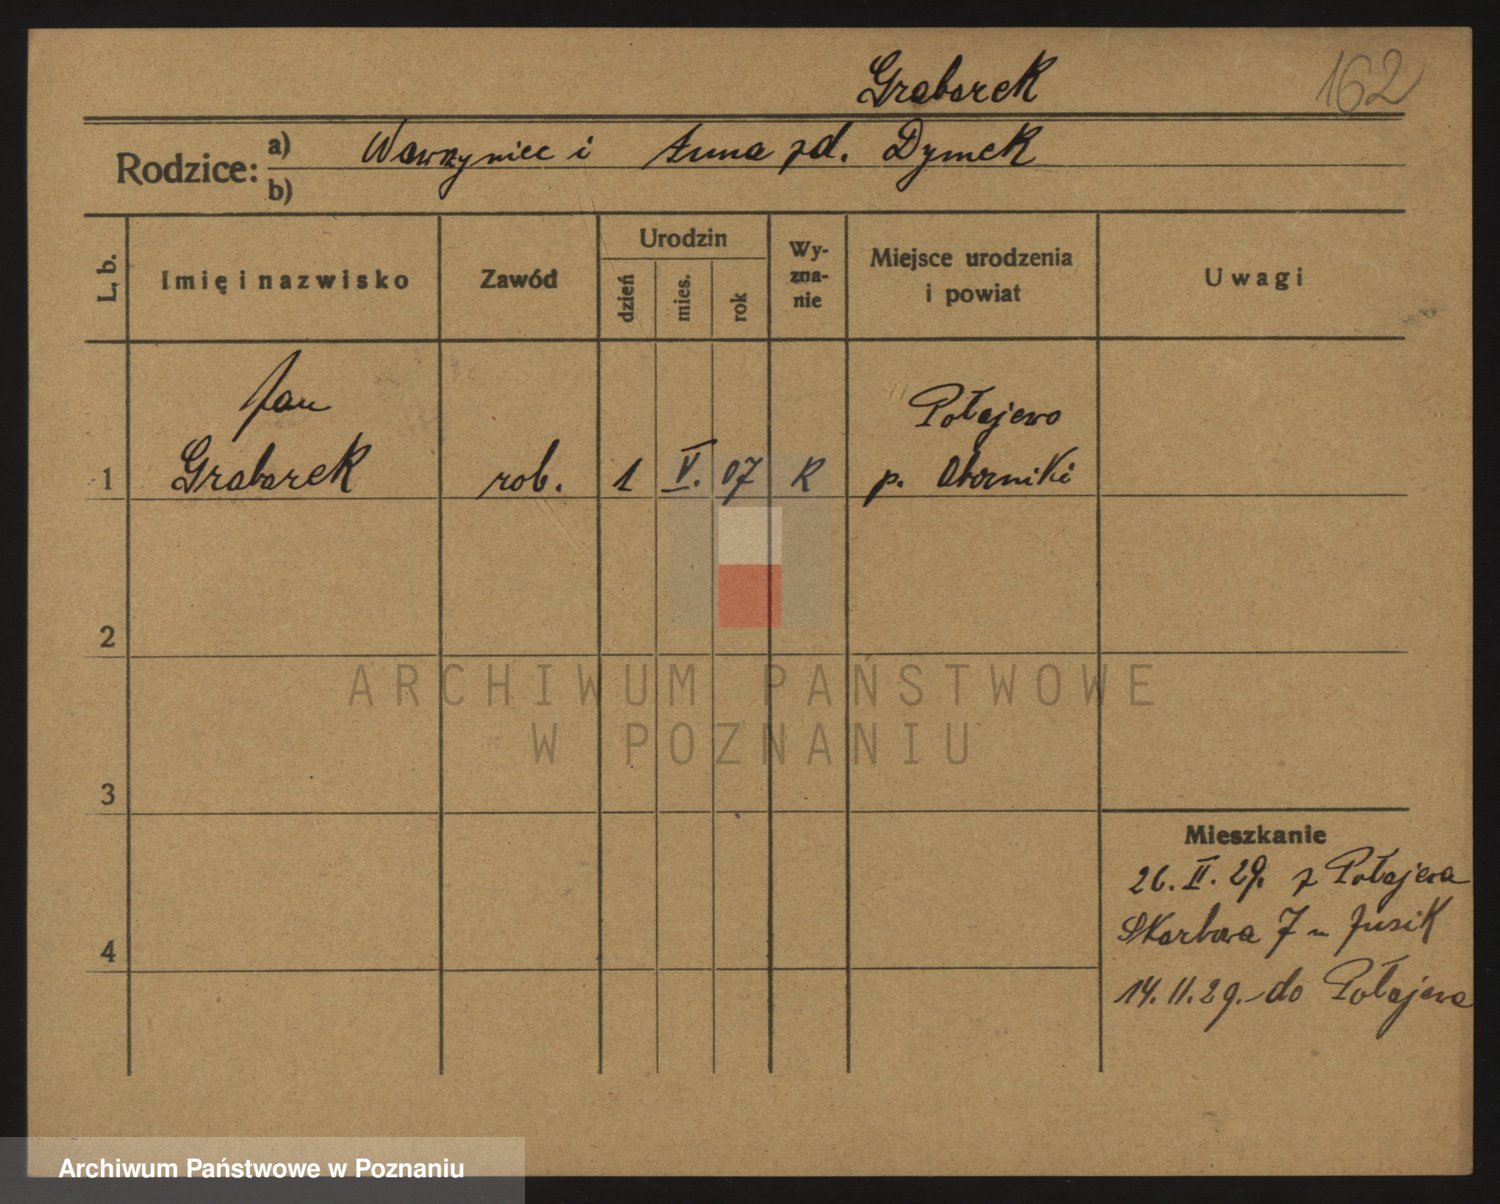 Graborek
162
Rodzice: a) Wawrzyniec i Anna zd. Dymek
b)
L. b. Imię i nazwisko Zawód Urodzin dzień mies. rok Wy-zna-nie Miejsce urodzenia i powiat Uwagi
Jan Połajewo
1 Graborek rob. 1 V. 07 R p. Oborniki
2
ARCHIWUM PAŃSTWOWE
W POZNANIU
3
Mieszkanie
26. II. 29. z Połajewa
Skarbowa 7
4
14. 11. 29. do Połajewa
Archiwum Państwowe w Poznaniu